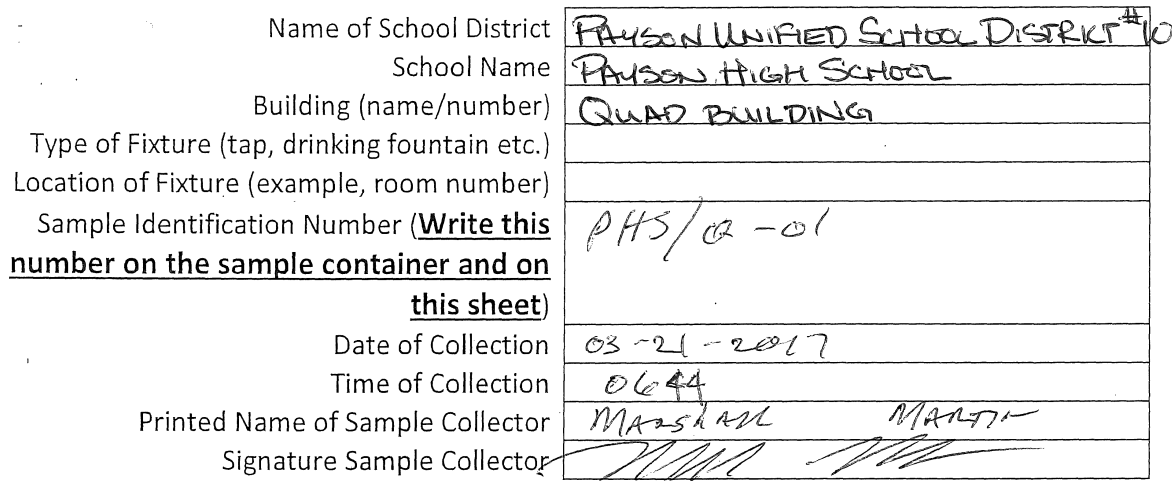 Name of School District PAYSON UNIFIED SCHOOL DISTRICT #10
School Name PAYSON HIGH SCHOOL
Building (name/number) QUAD BUILDING
Type of Fixture (tap, drinking fountain etc.)
Location of Fixture (example, room number)
Sample Identification Number (Write this PHS/Q-01
number on the sample container and on
this sheet)
Date of Collection 03-21-2017
Time of Collection 0644
Printed Name of Sample Collector MARSHALL MARTIN
Signature Sample Collector